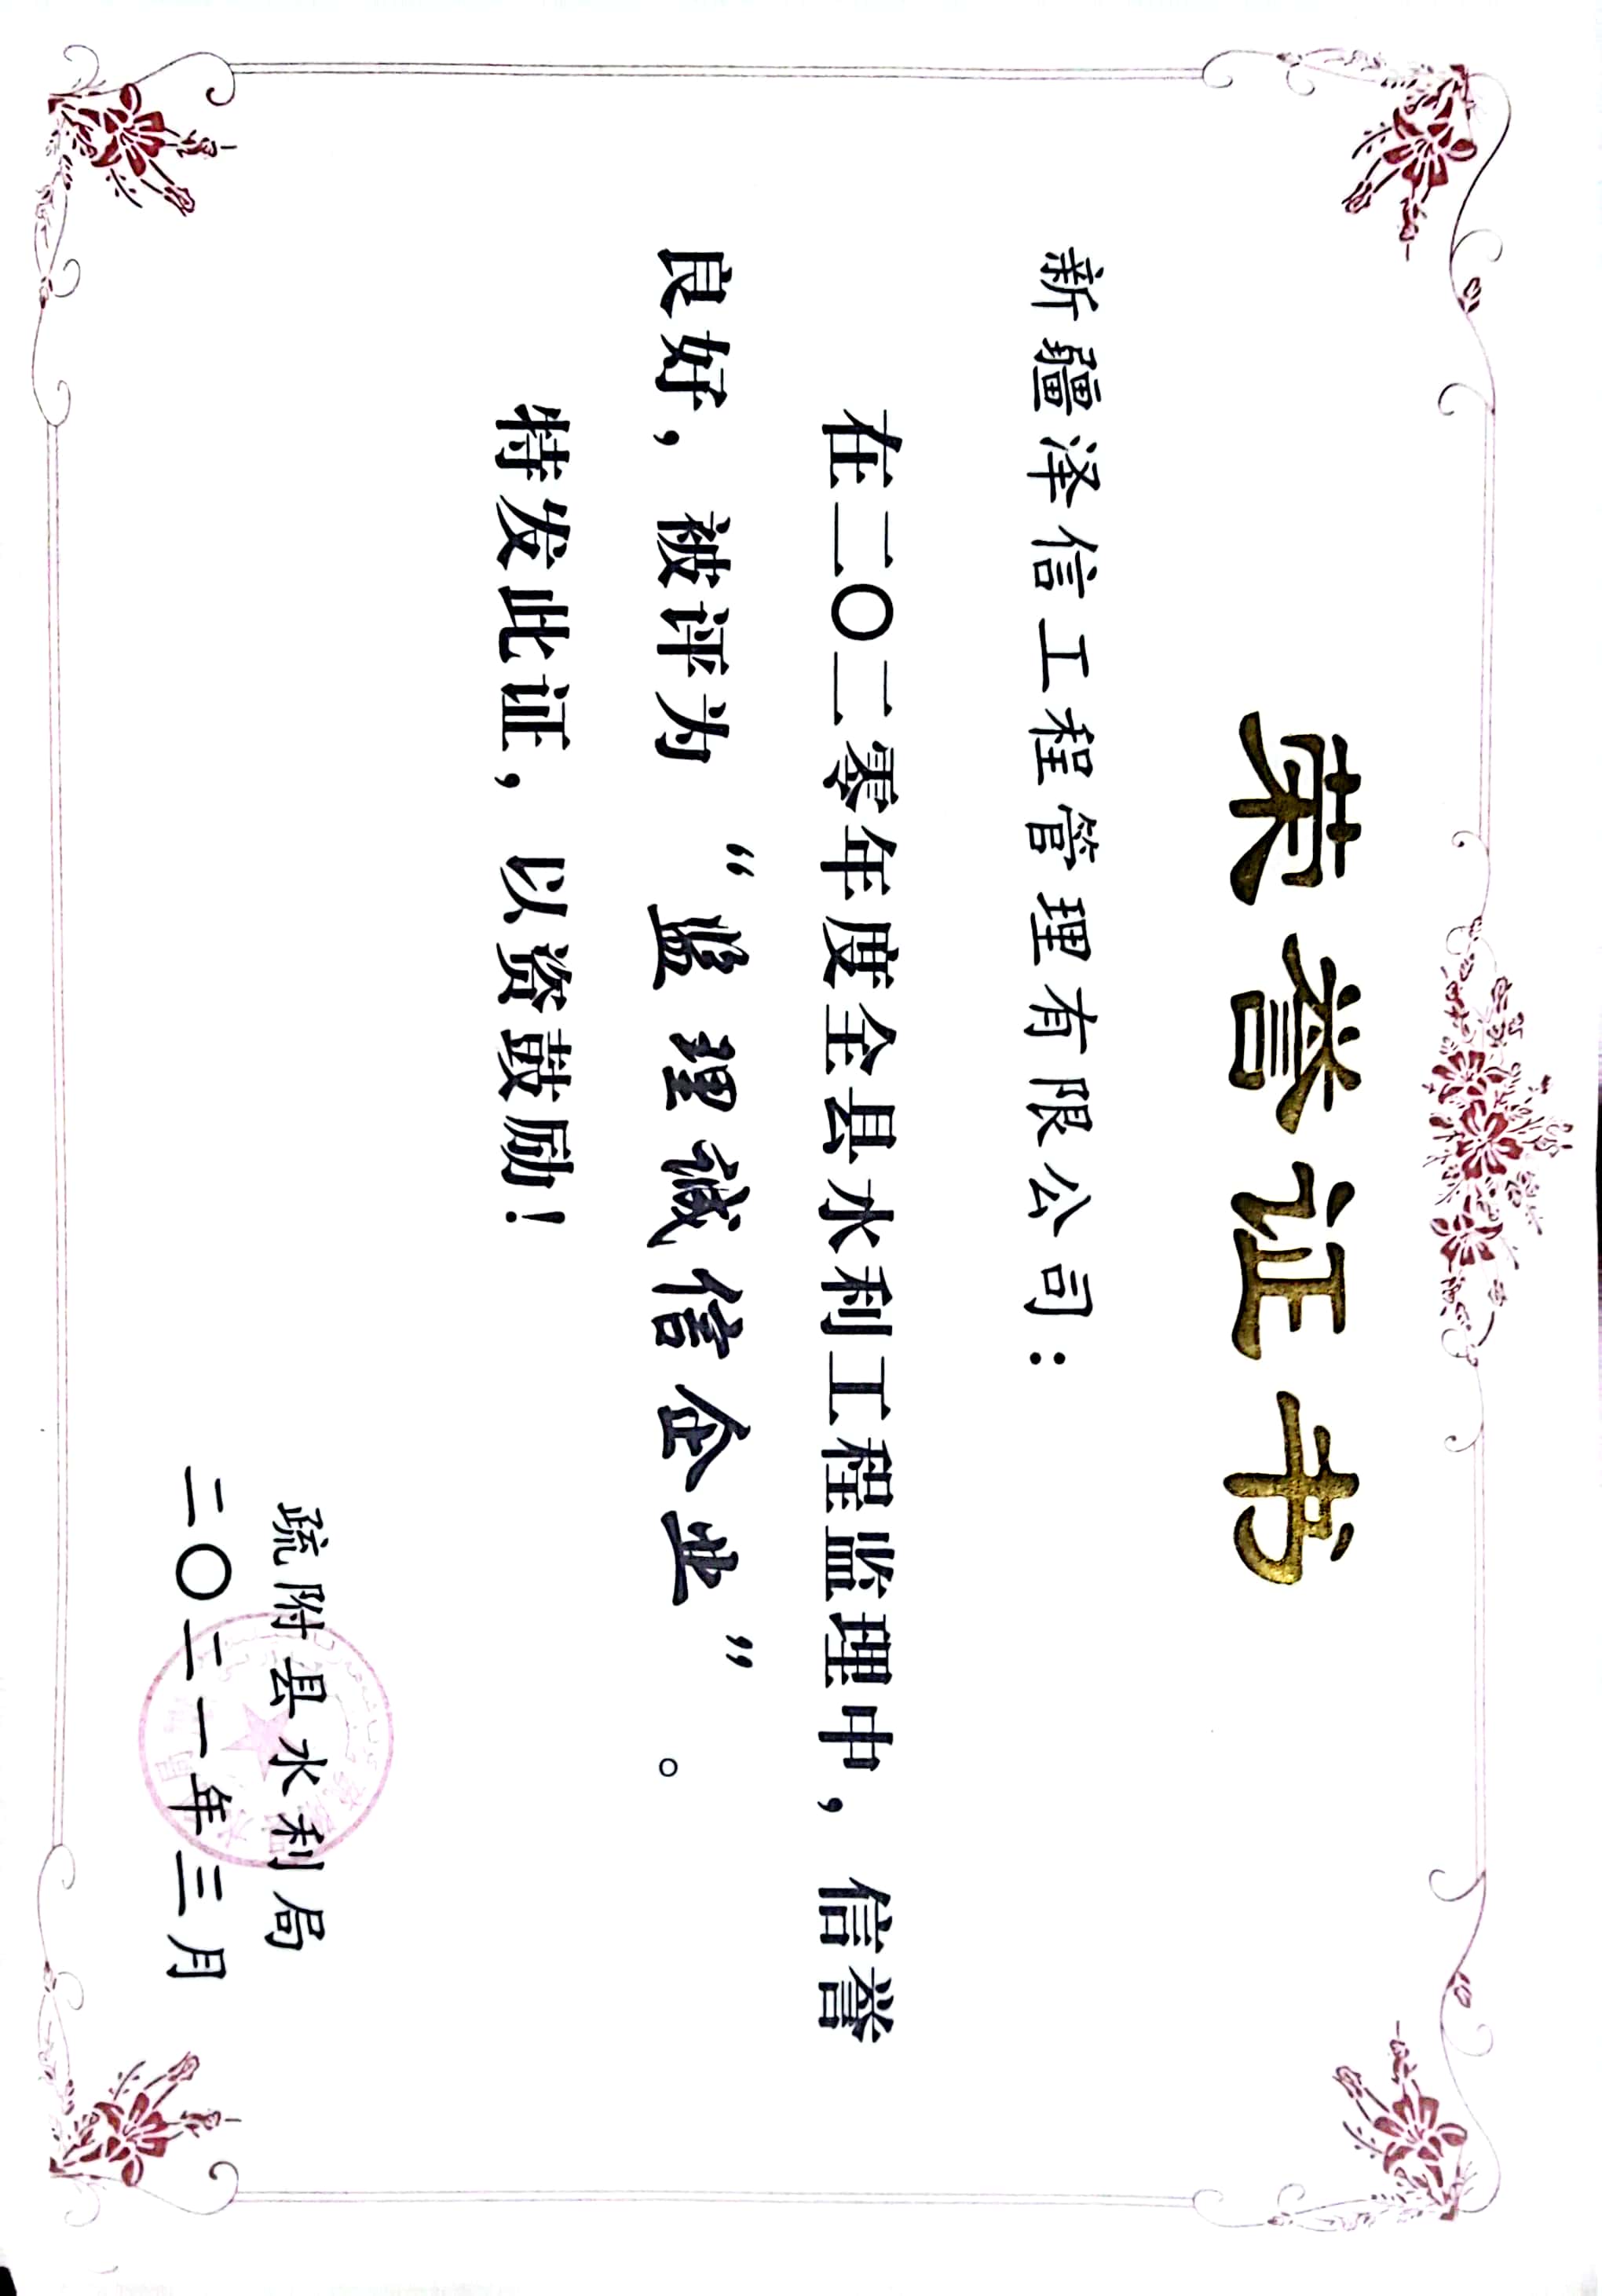 荣誉证书
新疆泽信工程管理有限公司：
在二〇二零年度全县水利工程监理中，信誉
良好，被评为“监理诚信企业”。
特发此证，以资鼓励！
疏附县水利局
二〇二一年三月